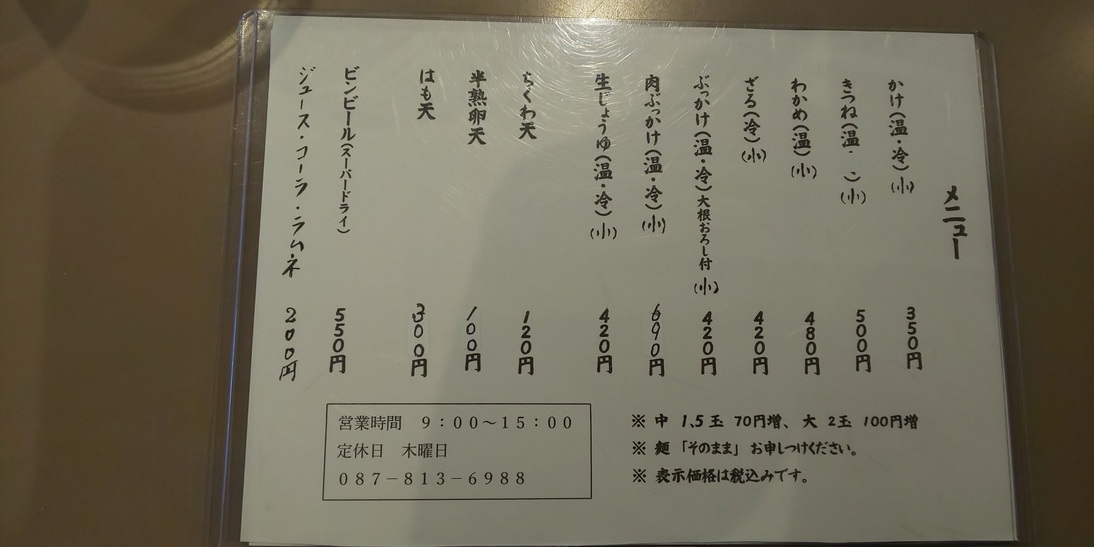 メニュー
かけ（温・冷）（小） 350円
きつね（温・　）（小） 500円
わかめ（温）（小） 480円
ざる（冷）（小） 420円
ぶっかけ（温・冷）大根おろし付（小） 420円
肉ぶっかけ（温・冷）（小） 690円
生じょうゆ（温・冷）（小） 420円
ちくわ天 120円
半熟卵天 100円
はも天 300円
ビンビール（スーパードライ） 550円
ジュース・コーラ・ラムネ 200円
※ 中 1、5玉 70円増、大 2玉 100円増
※ 麺「そのまま」お申しつけください。
※ 表示価格は税込みです。
営業時間　9：00～15：00
定休日　木曜日
087－813－6988